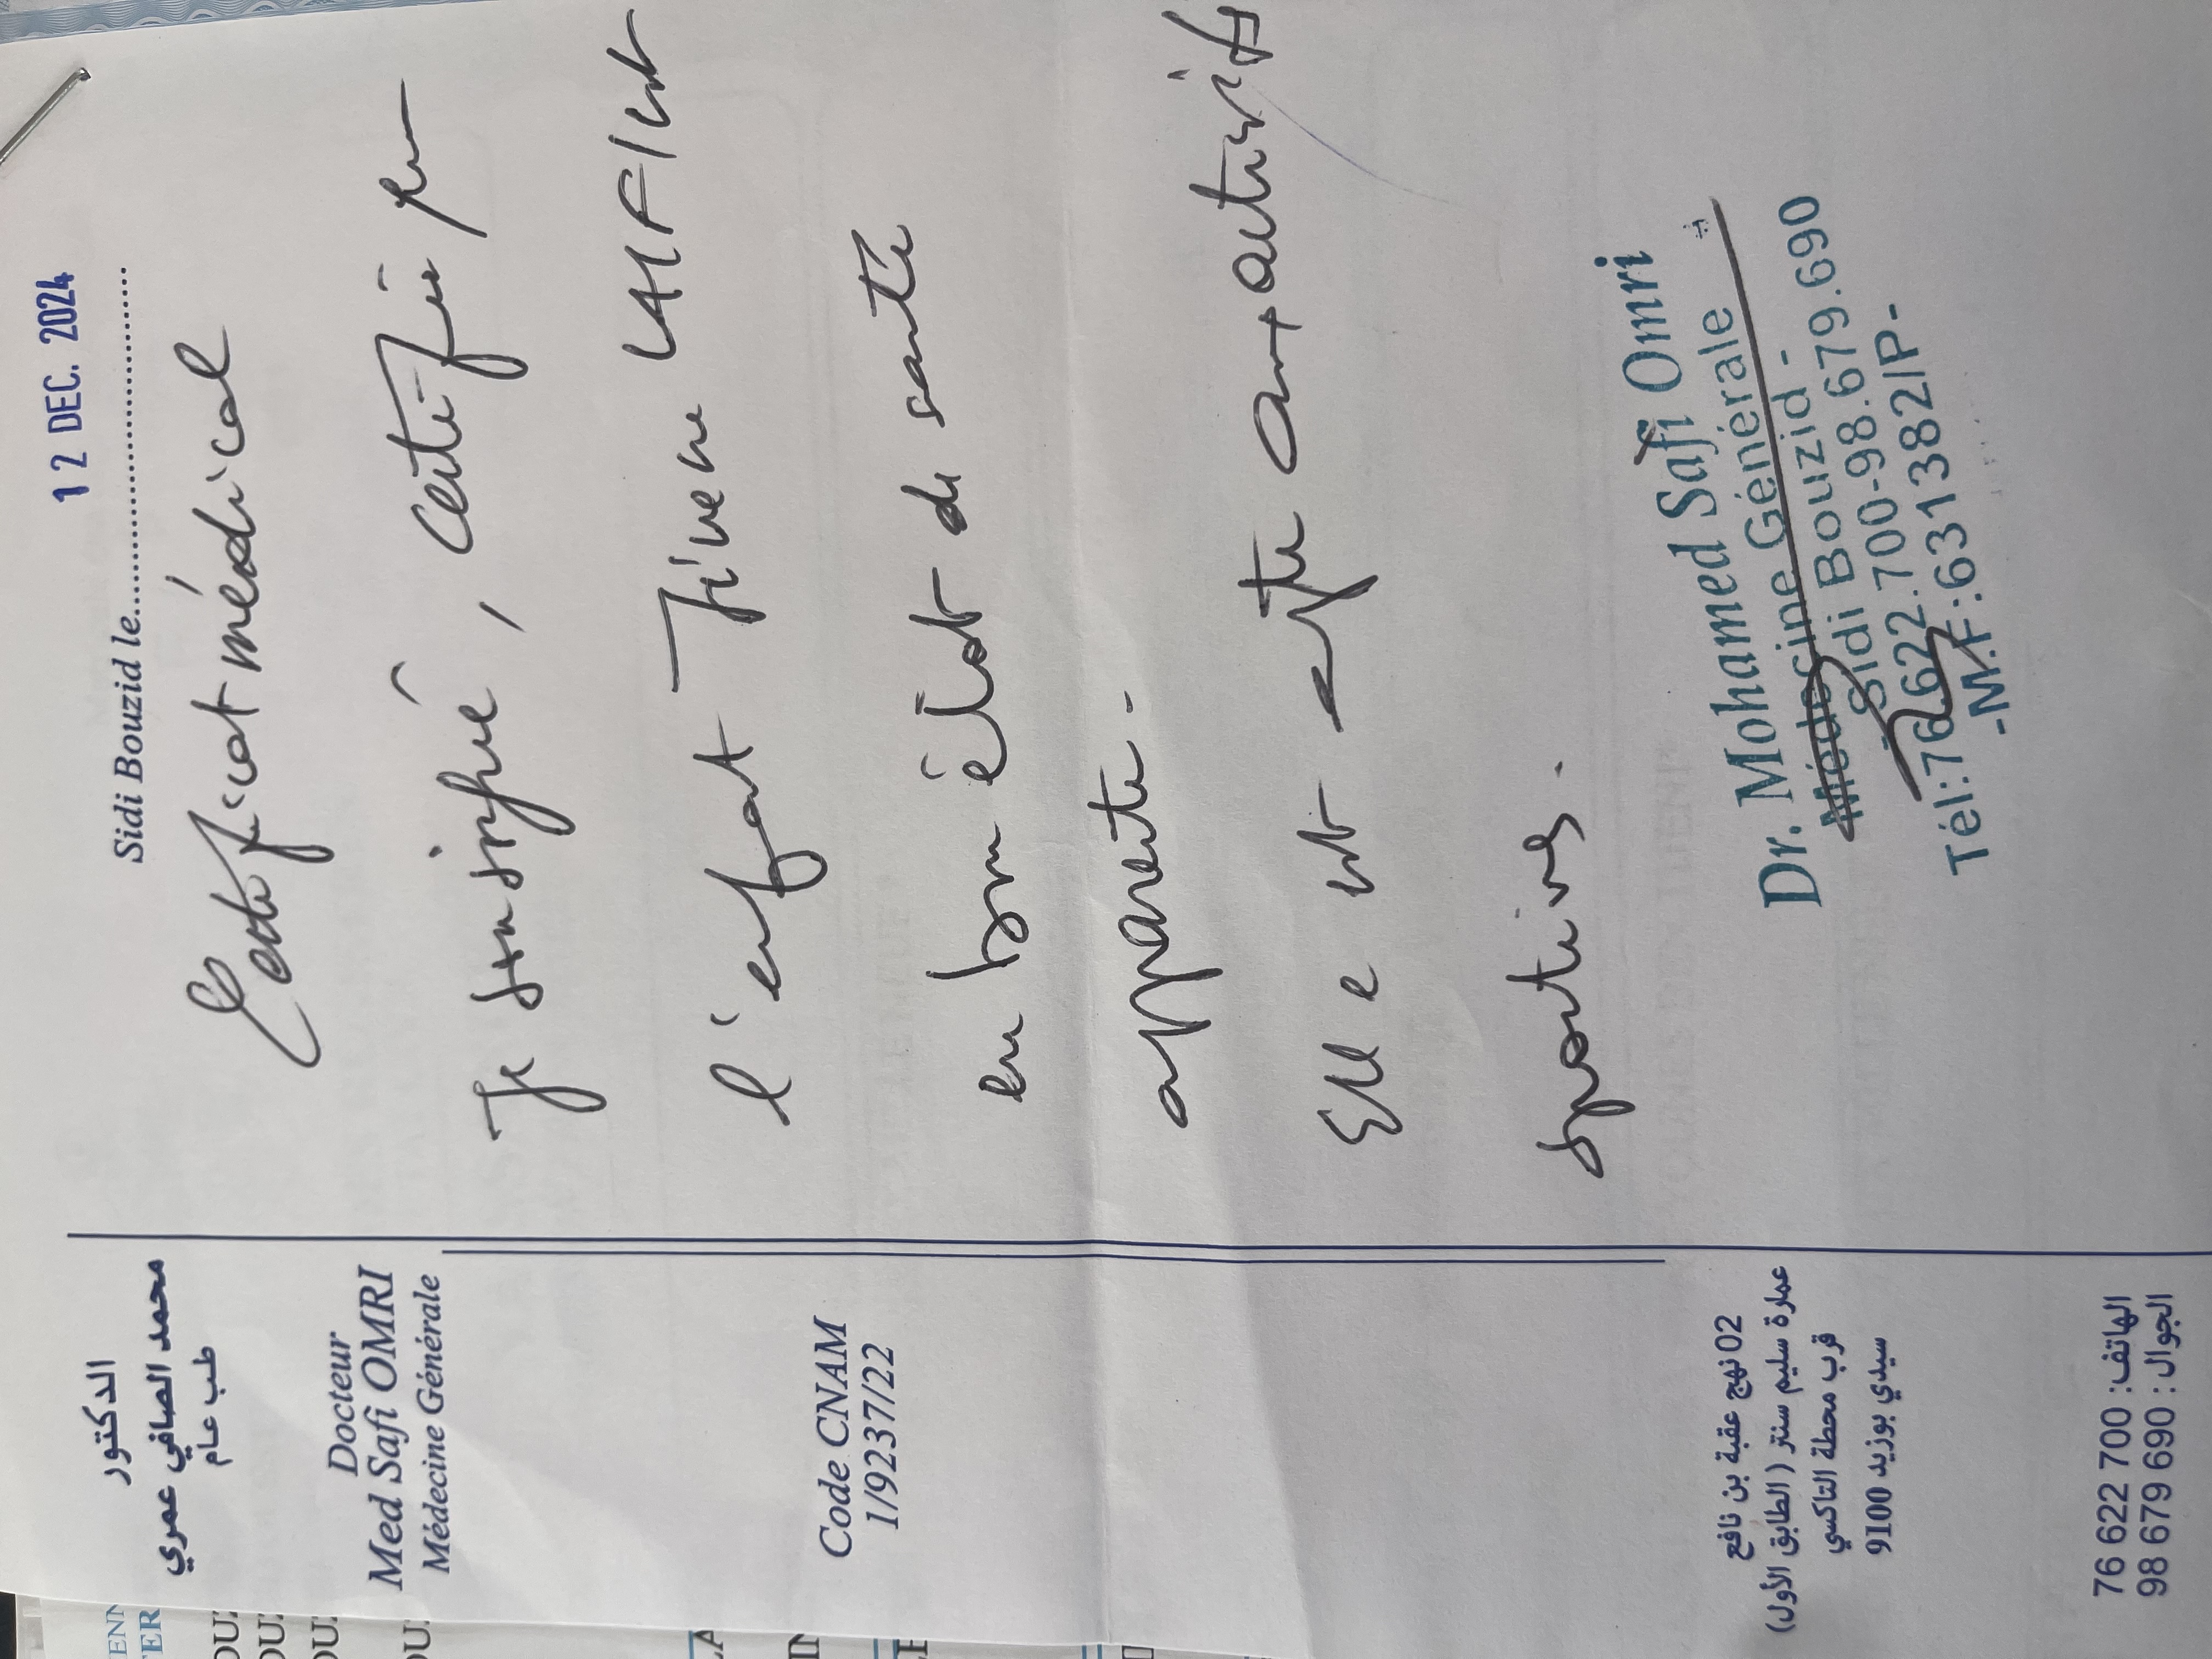 الدكتور
محمد الصافي عمري
طب عام
Docteur
Med Safi OMRI
Médecine Générale
Code CNAM
1/9237/22
02 نهج عقبة بن نافع
عمارة سليم سنتر ( الطابق الأول)
قرب محطة التاكسي
سيدي بوزيد 9100
الهاتف: 700 622 76
الجوال : 690 679 98
12 DEC. 2024
Sidi Bouzid le
Certificat médical
Je soussigné, certifie que
l'enfant
en bon état de santé
apparente.
Elle est apte aux activités
sportives.
Dr. Mohamed Safi Omri
Médecine Générale
- Sidi Bouzid -
Tél:76.622.700-98.679.690
-M.F:631382/P-